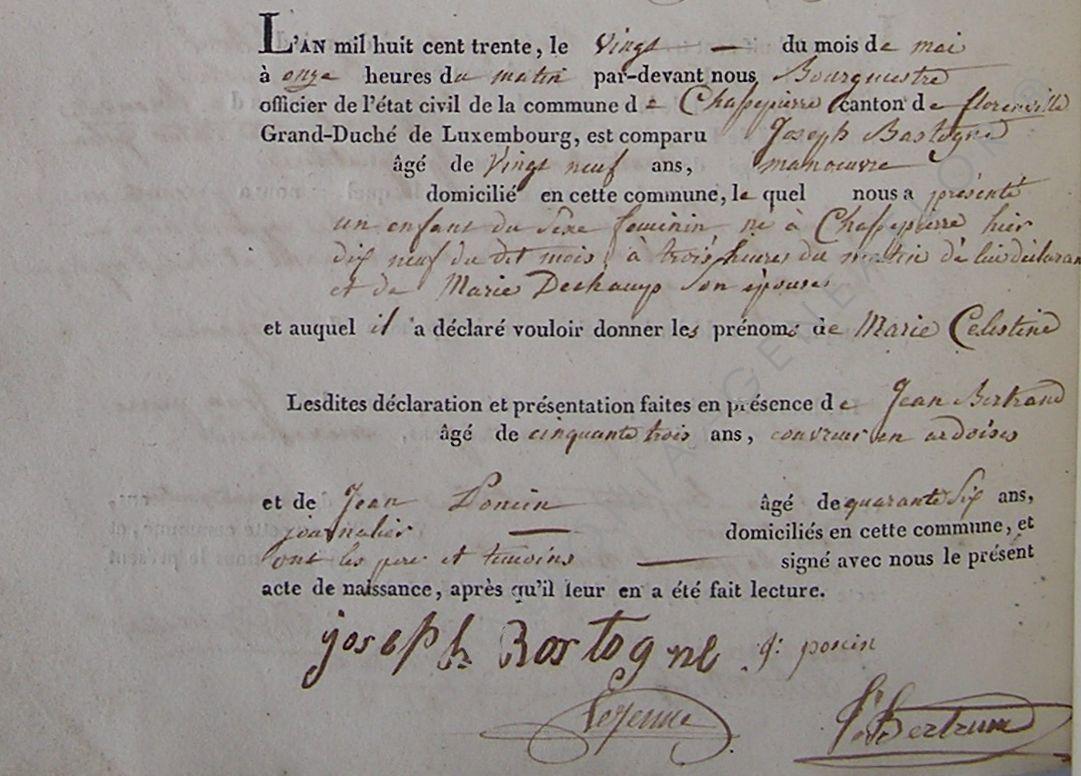 L'AN mil huit cent trente, le Vingt — du mois de mai
à onze heures du matin par-devant nous Bourguestre
officier de l'état civil de la commune de Chassepierre canton de florenville
Grand-Duché de Luxembourg, est comparu Joseph Bastogne
âgé de Vingt neuf ans, manoeuvre
domicilié en cette commune, le quel nous a présenté
un enfant du Sexe feminin, né à Chassepierre hier
dix neuf du dit mois, à trois heures du matin de lui déclarant
et de Marie Deshamps son épouse
et auquel il a déclaré vouloir donner les prénoms de Marie Celestine
Lesdites déclaration et présentation faites en présence de Jean Bertrand
âgé de cinquante trois ans, couvreur en ardoises
et de Jean Poncin âgé de quarante Six ans,
journalier — domiciliés en cette commune, et
ont les pere et temoins — signé avec nous le présent
acte de naissance, après qu'il leur en a été fait lecture.
joseph Bastogne j: poncin